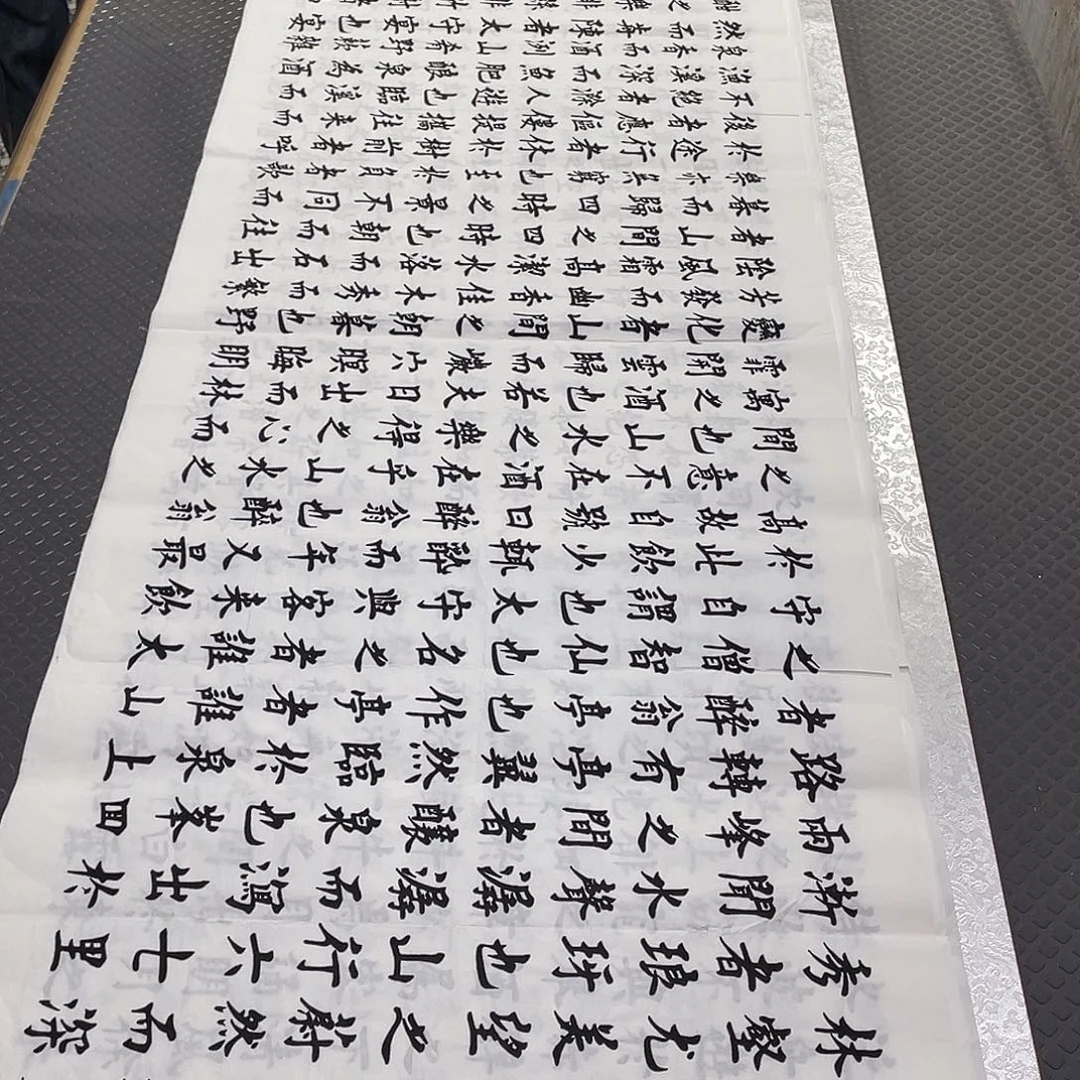 林壑尤美望之蔚然而深
秀者琅玡也山行六七里
漸聞水聲潺潺而瀉出於
兩峰之間者釀泉也峯回
路轉有亭翼然臨於泉上
者醉翁亭也作亭者誰山
之僧智仙也名之者誰太
守自謂也太守與客來飲
於此飲少輒醉而年又最
高故自號曰醉翁也醉翁
之意不在酒在乎山水之
間也山水之樂得之心而
寓之酒也若夫日出而林
霏開雲歸而巖穴暝晦明
變化者山間之朝暮也野
芳發而幽香佳木秀而繁
陰風霜高潔水落而石出
者山間之四時也朝而往
暮而歸四時之景不同而
樂亦無窮也至於負者歌
於途行者休於樹前者呼
後者應傴僂提攜往來而
不絕者滁人遊也臨溪而
漁溪深而魚肥釀泉為酒
泉香而酒洌山肴野蔌雜
然而前陳者太守宴也宴